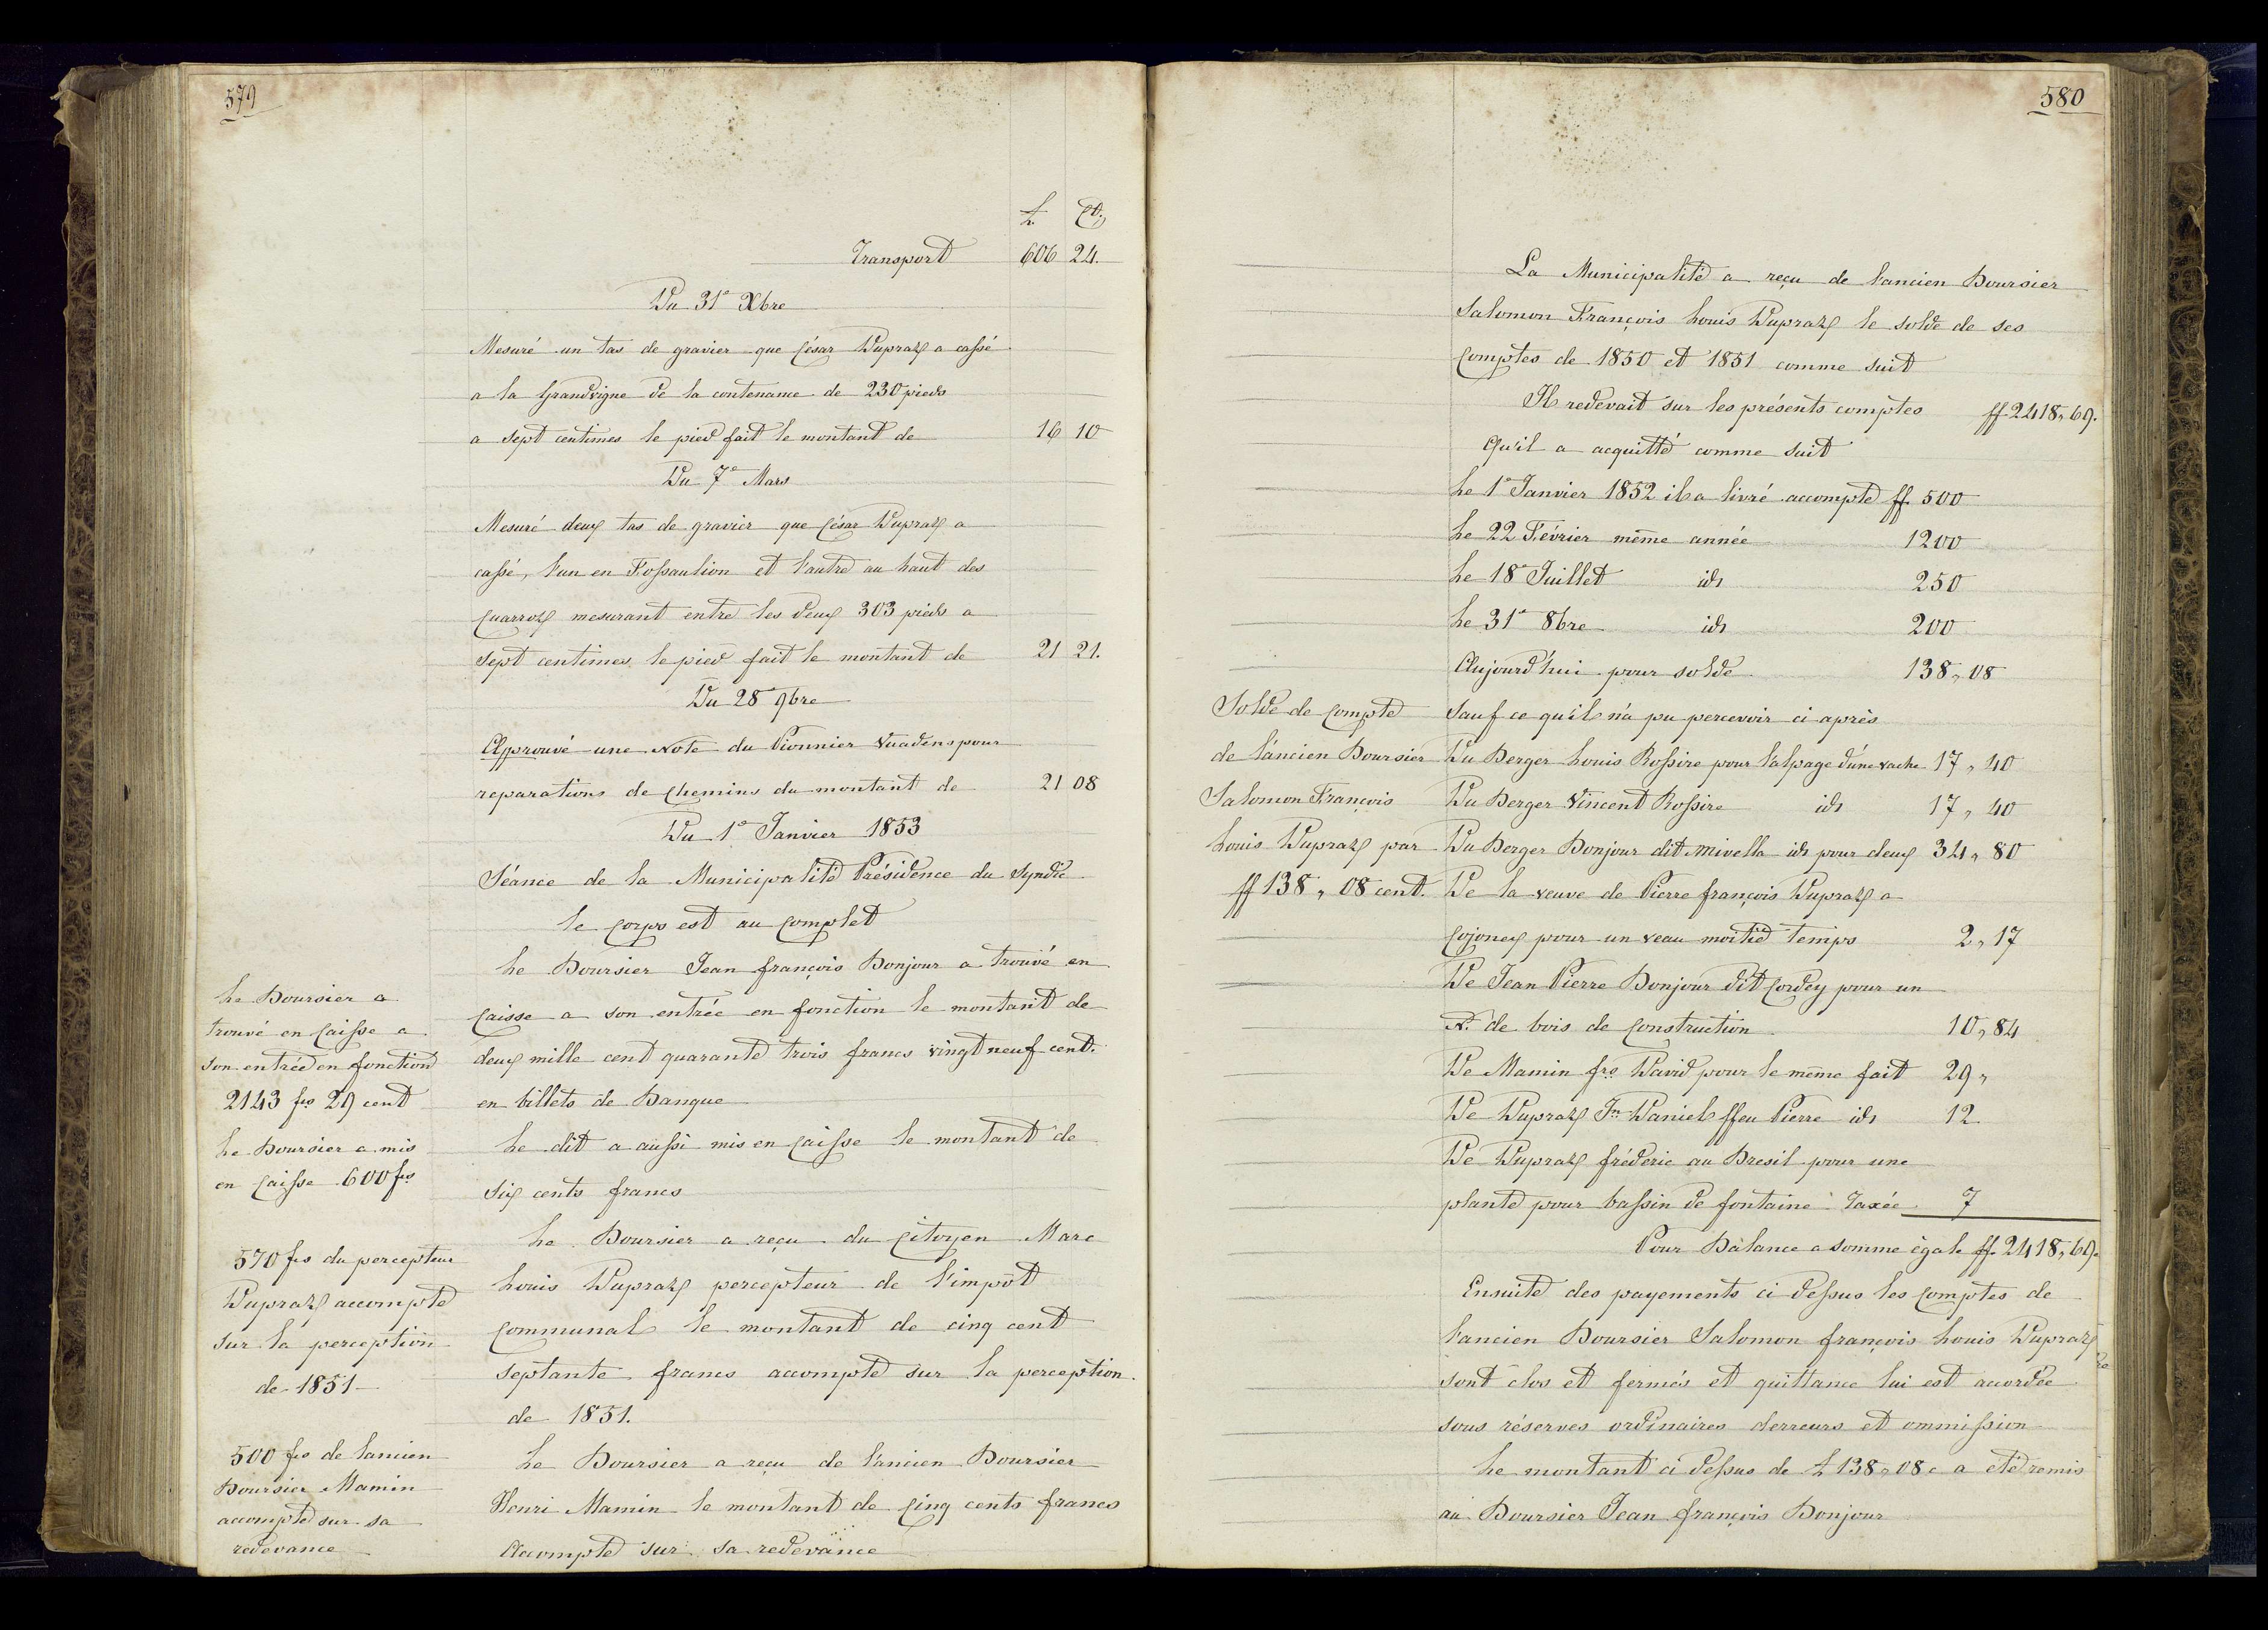 579
L. Ct.
Transport 606 24.
Du 31e Xbre
Mesuré un tas de gravier que César Dupraz a cassé
a la Grandvigne de la contenance de 230 pieds
a sept centimes le pied fait le montant de 16 10
Du 7e Mars
Mesuré deux tas de gravier que César Dupraz a
cassé, l'un en Fossaulion et l'autre au haut des
quarroz mesurant entre les deux 303 pieds a
sept centimes le pied fait le montant de 21 21.
Du 28 9bre
Approuvé une Note du Pionnier Vuadens pour
reparations de chemins du montant de 21 08
Du 1e Janvier 1853
Séance de la Municipalité Présidence du Syndic
le corps est au complet
Le Boursier Jean françois Bonjour a trouvé en
caisse a son entrée en fonction le montant de
deux mille cent quarante trois francs vingt neuf cent.
en billets de Banque
Le dit a aussi mis en caisse le montant de
six cents francs
Le Boursier a reçu du citoyen Marc
Louis Dupraz percepteur de l'impôt
communal le montant de cinq cent
septante francs accompte sur la perception
de 1851.
Le Boursier a reçu de l'ancien Boursier
Henri Mamin le montant de cinq cents francs
Accompte sur sa redevance
Le Boursier a
trouvé en caisse a
son entrée en fonction
2143 frs 29 cent
Le Boursier a mis
en caisse 600 frs
570 frs du percepteur
Dupraz accompte
sur la perception
de 1851
500 frs de lancien
Boursier Mamin
accompte sur sa
redevance
580
La Municipalité a reçu de l'ancien Boursier
Salomon François Louis Dupraz le solde de ses
comptes de 1850 et 1851 comme suit
Il redevait sur les présents comptes ff 2418,,69.
Qu'il a acquitté comme suit
Le 1e Janvier 1852 il a livré accompte ff. 500
Le 22 Février même année 1200
Le 18e Juillet id 250
Le 31e 8bre id 200
Aujourd'hui pour solde 138,,08
Sauf ce qu'il n'a pu percevoir ci après
Du Berger Louis Rossire pour l'alpage d'une vache 17,,40
Du Berger Vincent Rossire id 17,,40
Du Berger Bonjour dit Mivella id pour deux 34,,80
De la veuve de Pierre françois Dupraz a
Cojonex pour un veau moitié temps 2,,17
De Jean Pierre Bonjour dit Cordey pour un
No. de bois de construction 10,,84
De Mamin frs David pour le même fait 29,,
De Dupraz Jn Daniel ffeu Pierre id 12
De Dupraz fréderic au Bresil pour une
plante pour bassin de fontaine Taxée 7
Pour Balance a somme égale ff. 2418,,69.
Ensuite des payements ci dessus les comptes de
l'ancien Boursier Salomon françois Louis Dupraz
sont clos et fermés et quittance lui est accordée
sous réserves ordinaires derreurs et ommission
Le montant ci dessus de L 138,,08 c a été remis
au Boursier Jean françois Bonjour
Solde de compte
de l'ancien Boursier
Salomon François
Louis Dupraz par
ff 138,,08 cent.